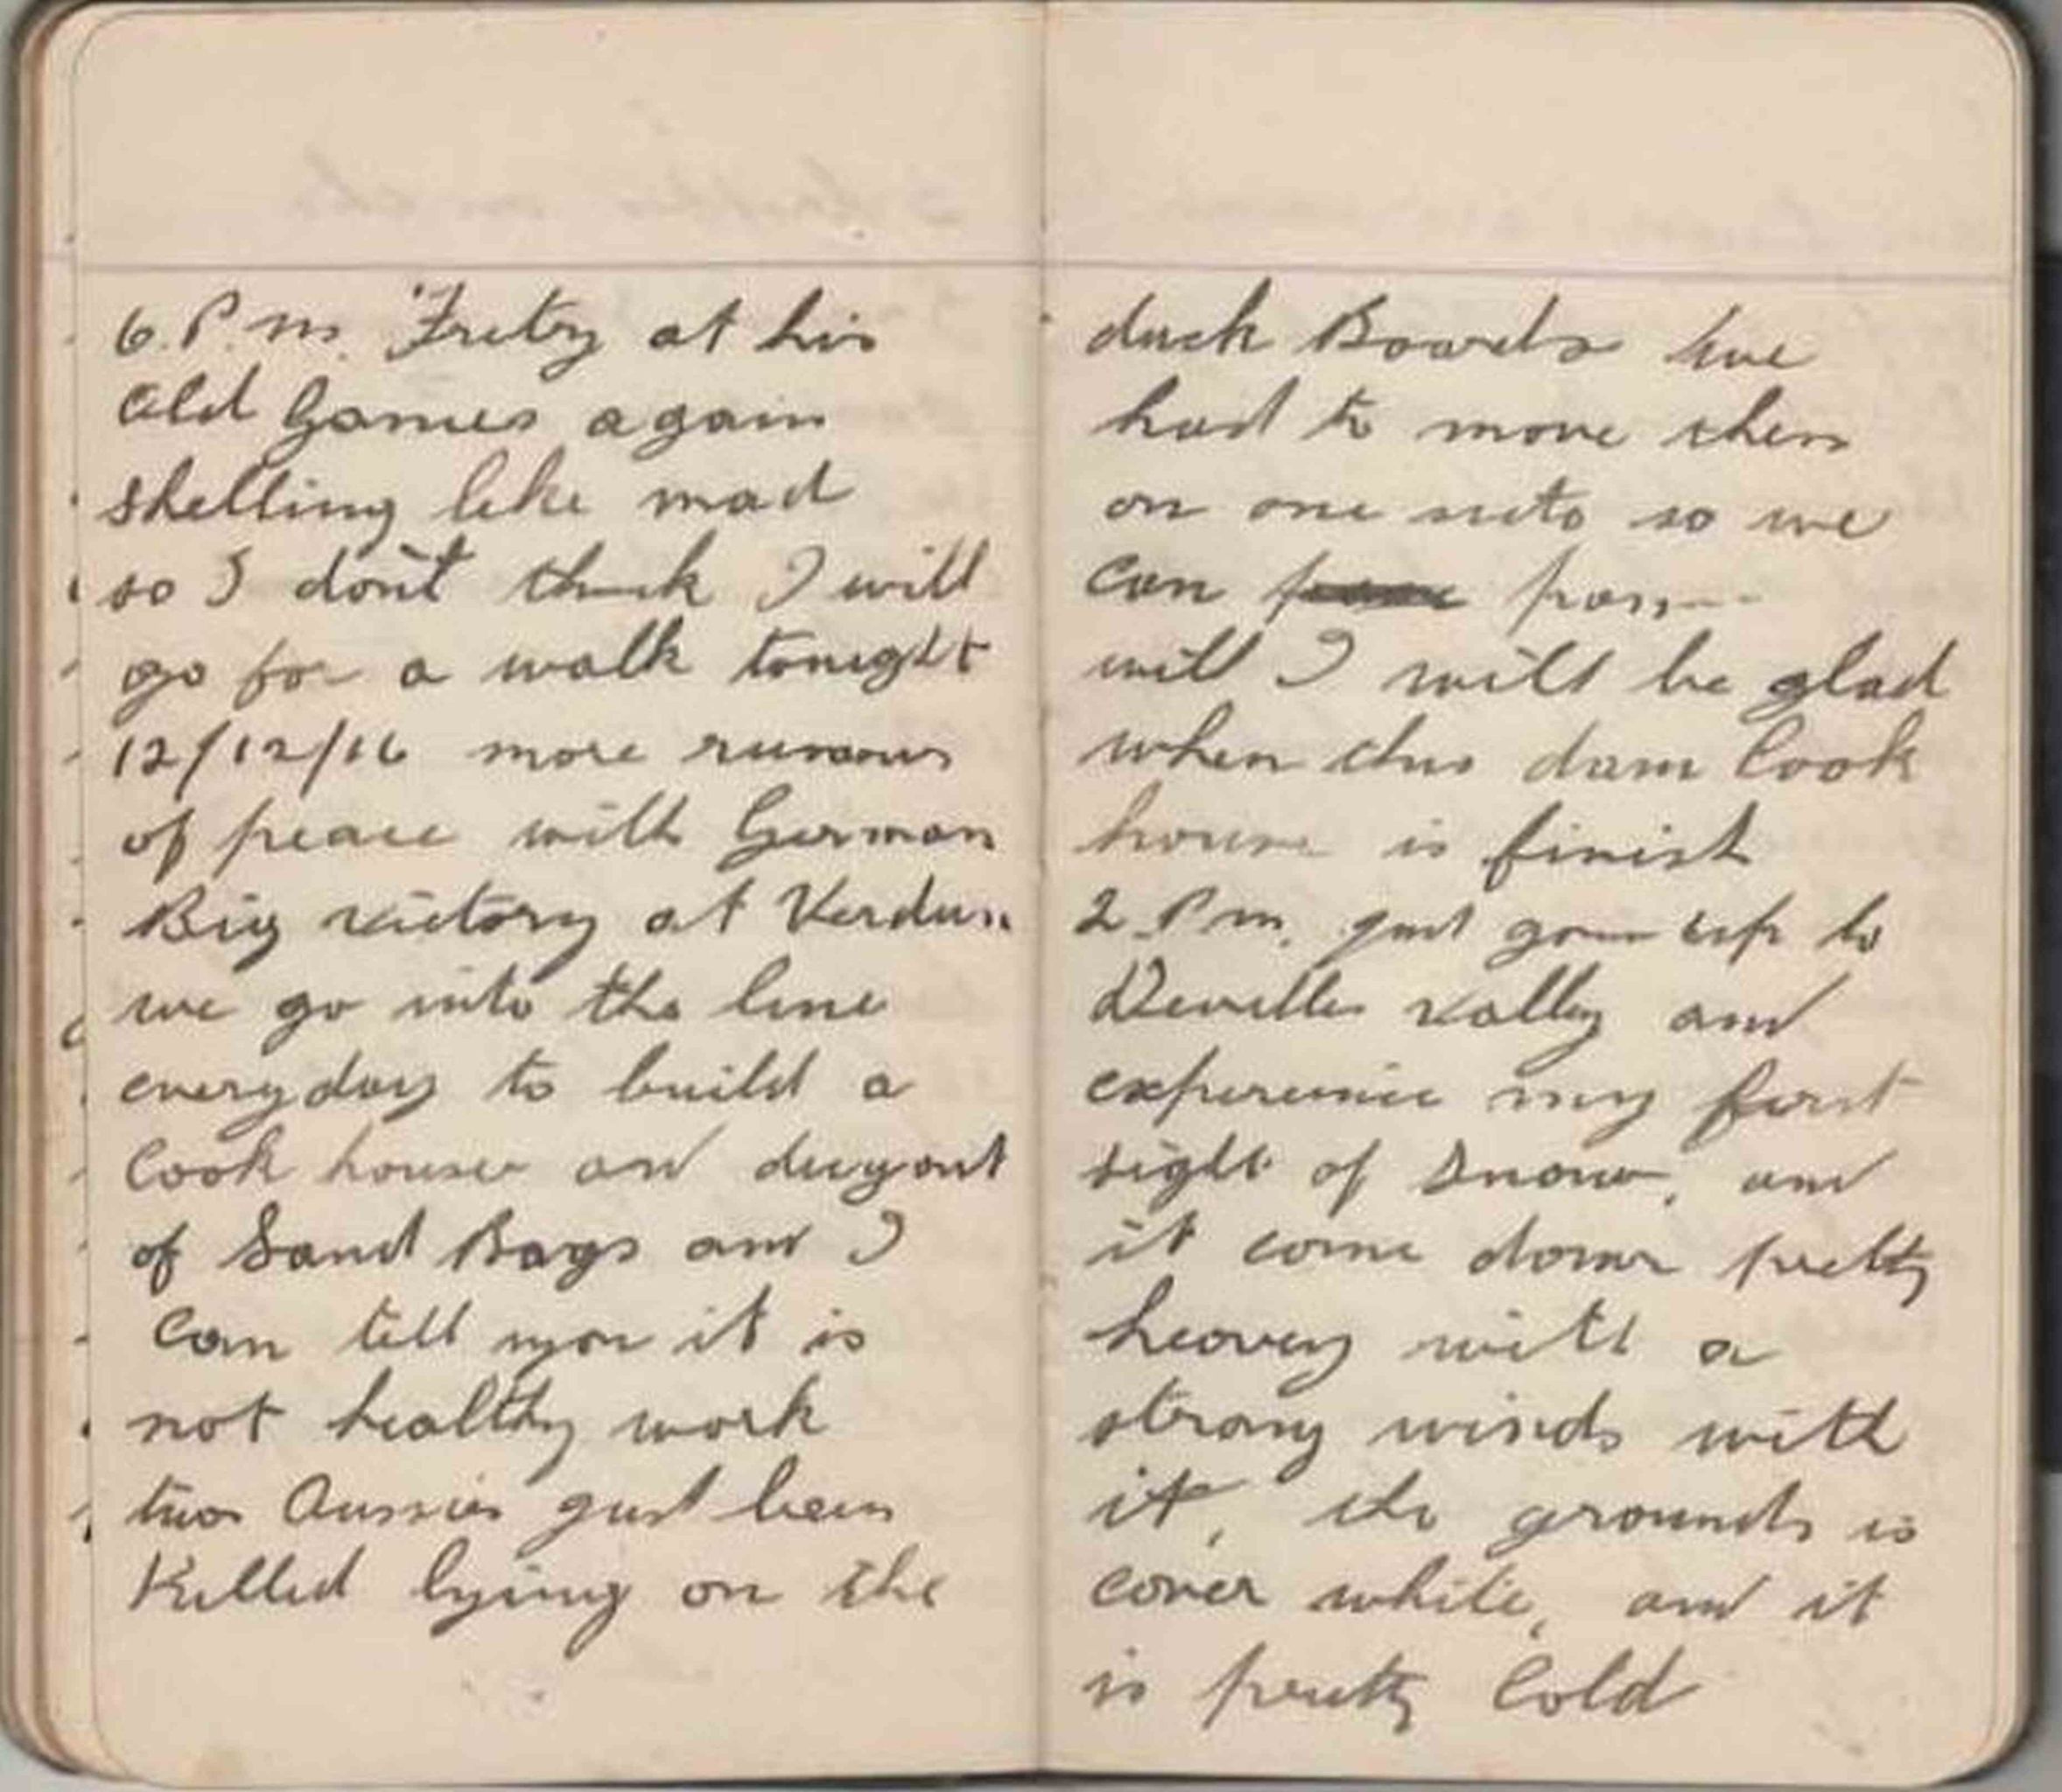 6. P. m. Fritzy at his
old Games again
shelling like mad
so I don't think I will
go for a walk tonight
12/12/16 more rumours
of peace with German
Big victory at Verdun
we go into the line
everyday to build a
Cook house and dugout
of Sand Bags and I
Can tell you it is
not healthy work
two Aussies just been
Killed lying on the
duck Boards we
had to move them
on one so we
can pass
will I will be glad
when this dam Cook
house is finish
2. P m. just up to
Deville valley and
experience my first
sight of Snow, and
it come down pretty
heavey with a
strong winds with
it, the grounds is
cover white, and it
is pretty Cold